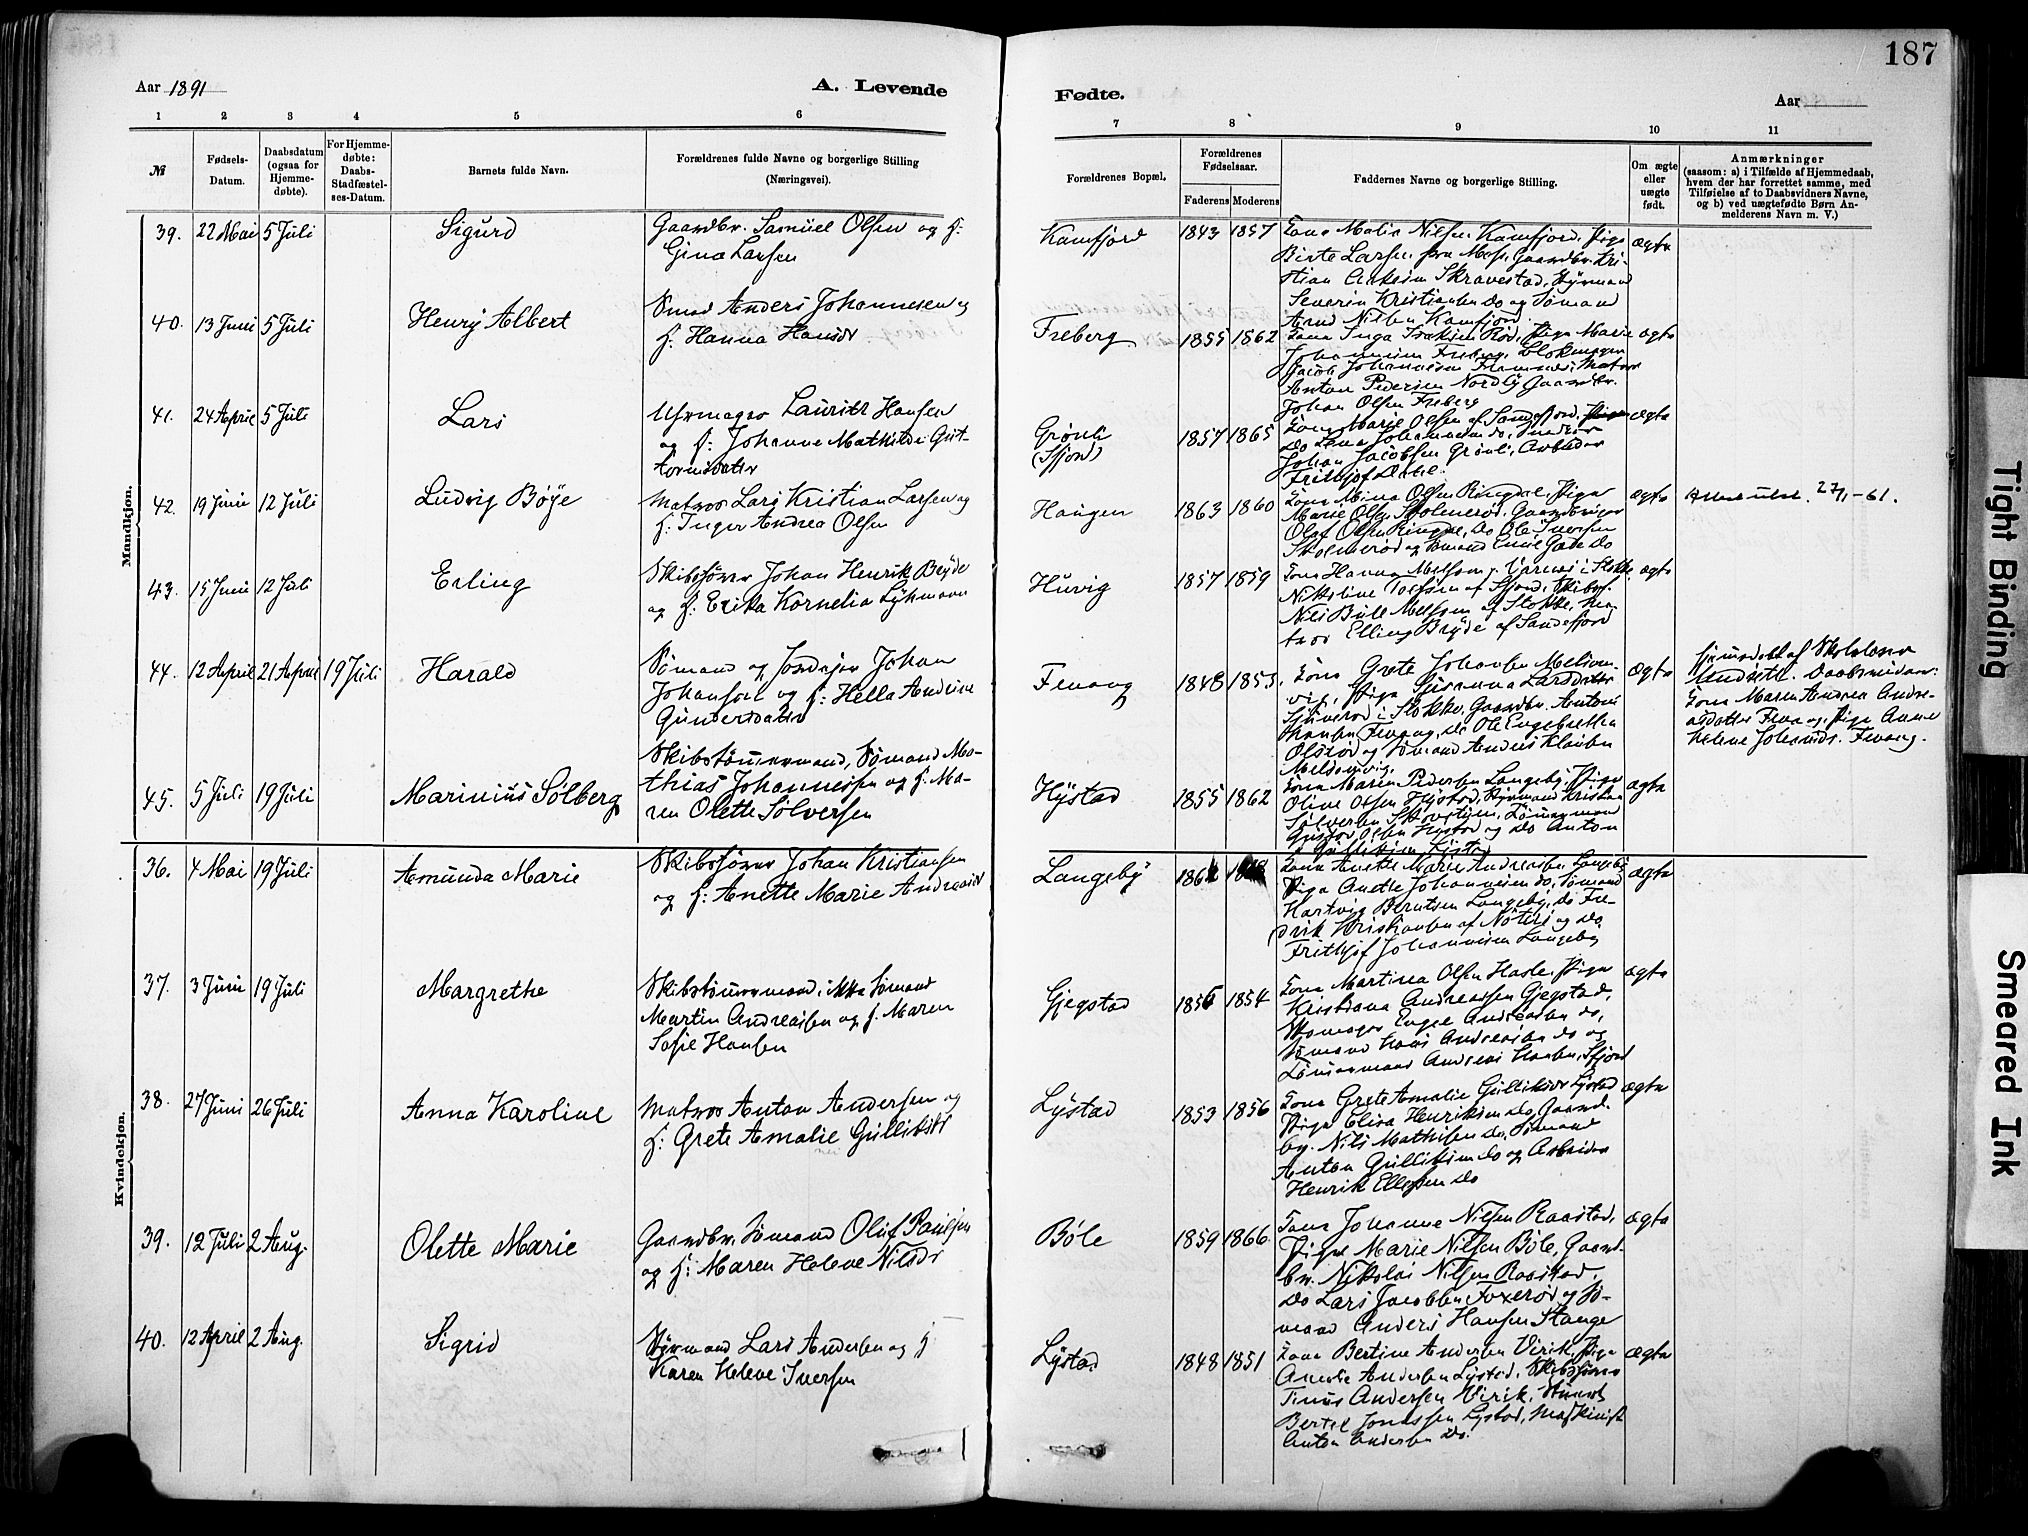 187
Aar 1891 A. Levende Fødte. Aar
1 2 3 4 5 6 7 8 9 10 11
№
Fødsels-
Datum.
Daabsdatum
(ogsaa for
Hjemme-
døbte).
For Hjemme-
døbte:
Daabs-
Stadfæstel-
ses-Datum.
Barnets fulde Navn.
Forældrenes fulde Navne og borgerlige Stilling
(Næringsvei).
Forældrenes Bopæl.
Forældrenes
Fødselsaar.
Faderens Moderens
Faddernes Navne og borgerlige Stilling.
Om ægte
eller
uægte
født.
Anmærkninger
(saasom: a) i Tilfælde af Hjemmedaab,
hvem der har forrettet samme, med
Tilføielse af to Daabsvidners Navne,
og b) ved uægtefødte Børn An-
melderens Navn m. V.)
Mandkjøn.
39. 22 Mai 5 Juli Sigurd
Gaardbr. Samuel Olsen og h:
Gina Larsen
Kamfjord 1843 1857
Kona Malin Nilsen Kamfjord, Pige
Severin Kristiansen do og Sømand
Nilsen Kamfjord.
ægte
40. 13 Juni 5 Juli Henry Albert
Smed Anders Johannesen og
h: Hanna Hansdr
Freberg 1855 1862
Kona Inga Isaksen Rød, Pige Marie
Johannesen Freberg, Blokmager
Jacob Johannesen Framnæs, Matros
Anton Pedersen Nordby Gaardbr.
Johan Olsen Freberg
ægte
41. 24 April 5 Juli Lars
Uhrmager Lauritz Hansen
og h: Johanne Mathilde Gut-
tormsdatter
Grønli
(Sfjord)
1857 1865
Kona Marie Olsen af Sandefjord, Pige
Johan Jacobsen Grønli, Arbeider
Frithjof
ægte
42. 19 Juni 12 Juli Ludvig Bøye
Matros Lars Kristian Larsen og
h: Inger Andrea Olsen
Haugen 1863 1860
Kona Mina Olsen Ringdal, Pige
Marie Olsen Skolmerød, Gaardbruger
Olaf Olsen Ringdal, do Ole Iversen
Skolmerød og Sømand Emil Gade do
ægte
Attest utst. 27/1-61.
43. 15 Juni 12 Juli Erling
Skibsfører Johan Henrik Bryde
og h: Erika Kornelia Lykmann
Huvig 1857 1859
Kona Hanna Melsom, Varnes i Stokke,
Nikoline af Sfjord, Skibsf.
Nils Bull Melsom af Stokke, Ma-
tros Elling Bryde af Sandefjord
ægte
44. 12 April 21 April 19 Juli Harald
Sømand og Jordejer Johan
Johansen og h: Hella Andrine
Gundersdatter
Fevang 1848 1853
Kona Grete Johansen Melsom-
vig, Pige Susanna Larsdatter
i Stokke, Gaardbr. Antoni
Hansen Fevang, do Ole Engebretsen
Olsrød og Sømand Anders Klausen
Melsomvig.
ægte
Hjemmedøbt af Skolelærer
Undseth. Daabsvidner:
Kona Maren Andrea Andre-
asdatter Fevang, Pige Anne
Helene Johansdr. Fevang.
45. 5 Juli 19 Juli Marinius Sølberg
Skibstømmermand, Sømand Ma-
thias Johannessen og h: Ma-
ren Olette Sølversen
Hystad 1855 1862
Kona Maren Pedersen Langeby, Pige
Oline Olsen Hystad, Styrmand Kristian
Sølversen, Tømmermand
Gustav Olsen Hystad og do Anton
Gulliksen Lystad
ægte
Kvindekjøn.
36. 4 Mai 19 Juli Amunda Marie
Skibsfører Johan Kristiansen
og h: Anette Marie Andreasdr
Langeby
Kona Anette Marie Andreasen Langeby
Pige Anette Johannesen do, Sømand
Hartvig Berntsen Langeby, do Fre-
drik Kristiansen af Nøterø og do
Frithjof Johannesen Langeby
ægte
37. 3 Juni 19 Juli Margrethe
Skibstømmermand, Sømand
Martin Andreassen og h: Maren
Sofie Hansen
Gjegstad 1856 1854
Kona Martinea Olsen Hasle, Pige
Kristiana Andreassen Gjegstad,
Skomager Engel Andreassen do,
Sømand Hans Andreassen do og
Tømmermand Andreas Hansen, Sfjord
ægte
38. 27 Juni 26 Juli Anna Karoline
Matros Anton Andersen og
h: Grete Amalie Gulliksdr
Lystad 1853 1856
Kona Grete Amalie Gulliksdr Lystad
Pige Elisa Henriksen do, Gaard-
br. Nils Mathisen do, Sømand
Anton Gulliksen do og Arbeider
Henrik Ellefsen do
ægte
39. 12 Juli 2 Aug. Olette Marie
Gaardbr. Sømand Oluf Paulsen
og h: Maren Helene Nilsdr
Bøle 1859 1866
Kona Johanne Nilsen Raastad,
Pige Marie Nilsen Bøle, Gaard-
br. Nikolai Nilsen Raastad,
do Lars Jacobsen Foxerød og Sø-
mand Anders Hansen Stange
ægte
40. 12 April 2 Aug. Sigrid
Styrmand Lars Andersen og h
Karen Helene Iversen
Lystad 1848 1851
Kona Bertine Andersen Virik, Pige
Amalie Andersen Lystad, Skibsfører
Tinus Andersen Virik, Stuert
Bertel Jonassen Lystad, Maskinist
Anton Andersen do.
ægte
Tight Binding
Smeared Ink